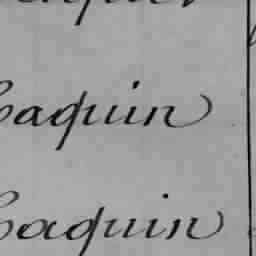 Caquin
Caquin